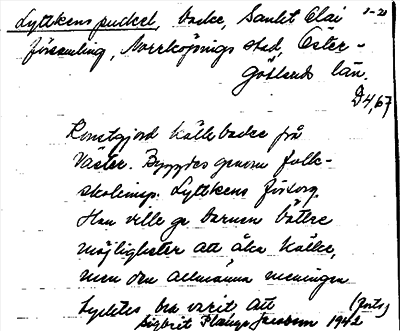 Lyttkens puckel, backe, Sankt Olai 1-21
församling, Norrköpings stad, Öster-
götlands län.
D4,67
Konstgjord kälkbacke från
Väster. Byggdes genom folk-
skoleinsp. Lyttkens försorg.
Han ville ge barnen bättre
möjligheter att åka kälke,
men den allmänna meningen
tycktes bra varit att (forts.)
Sigbrit Plænge Jacobson 1942